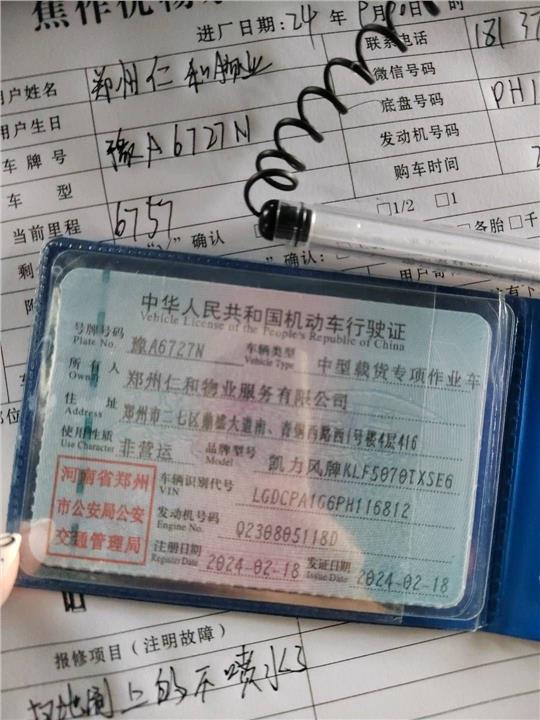 进厂日期:24 年
用户姓名 郑州仁和物业 联系电话
微信号码
用户生日 底盘号码 PH1
车牌号 豫A6727N 发动机号码
车 型 购车时间
当前里程 6757 □1/2 □1
确认 备胎
中华人民共和国机动车行驶证
Vehicle License of the People's Republic of China
号牌号码 豫A6727N 车辆类型 中型载货专项作业车
Plate No. Vehicle Type
所有人 郑州仁和物业服务有限公司
Owner
住 址 郑州市二七区鼎盛大道南、青铜西路西1号楼4层416
Address
使用性质 非营运 品牌型号 凯力风牌KLF5070TXSE6
Use Character Model
河南省郑州
市公安局公安
交通管理局
车辆识别代号 LGDCPA1G6PH116812
VIN
发动机号码 Q230805118D
Engine No.
注册日期 2024-02-18 发证日期 2024-02-18
Register Date Issue Date
报修项目（注明故障）
上的不喷水